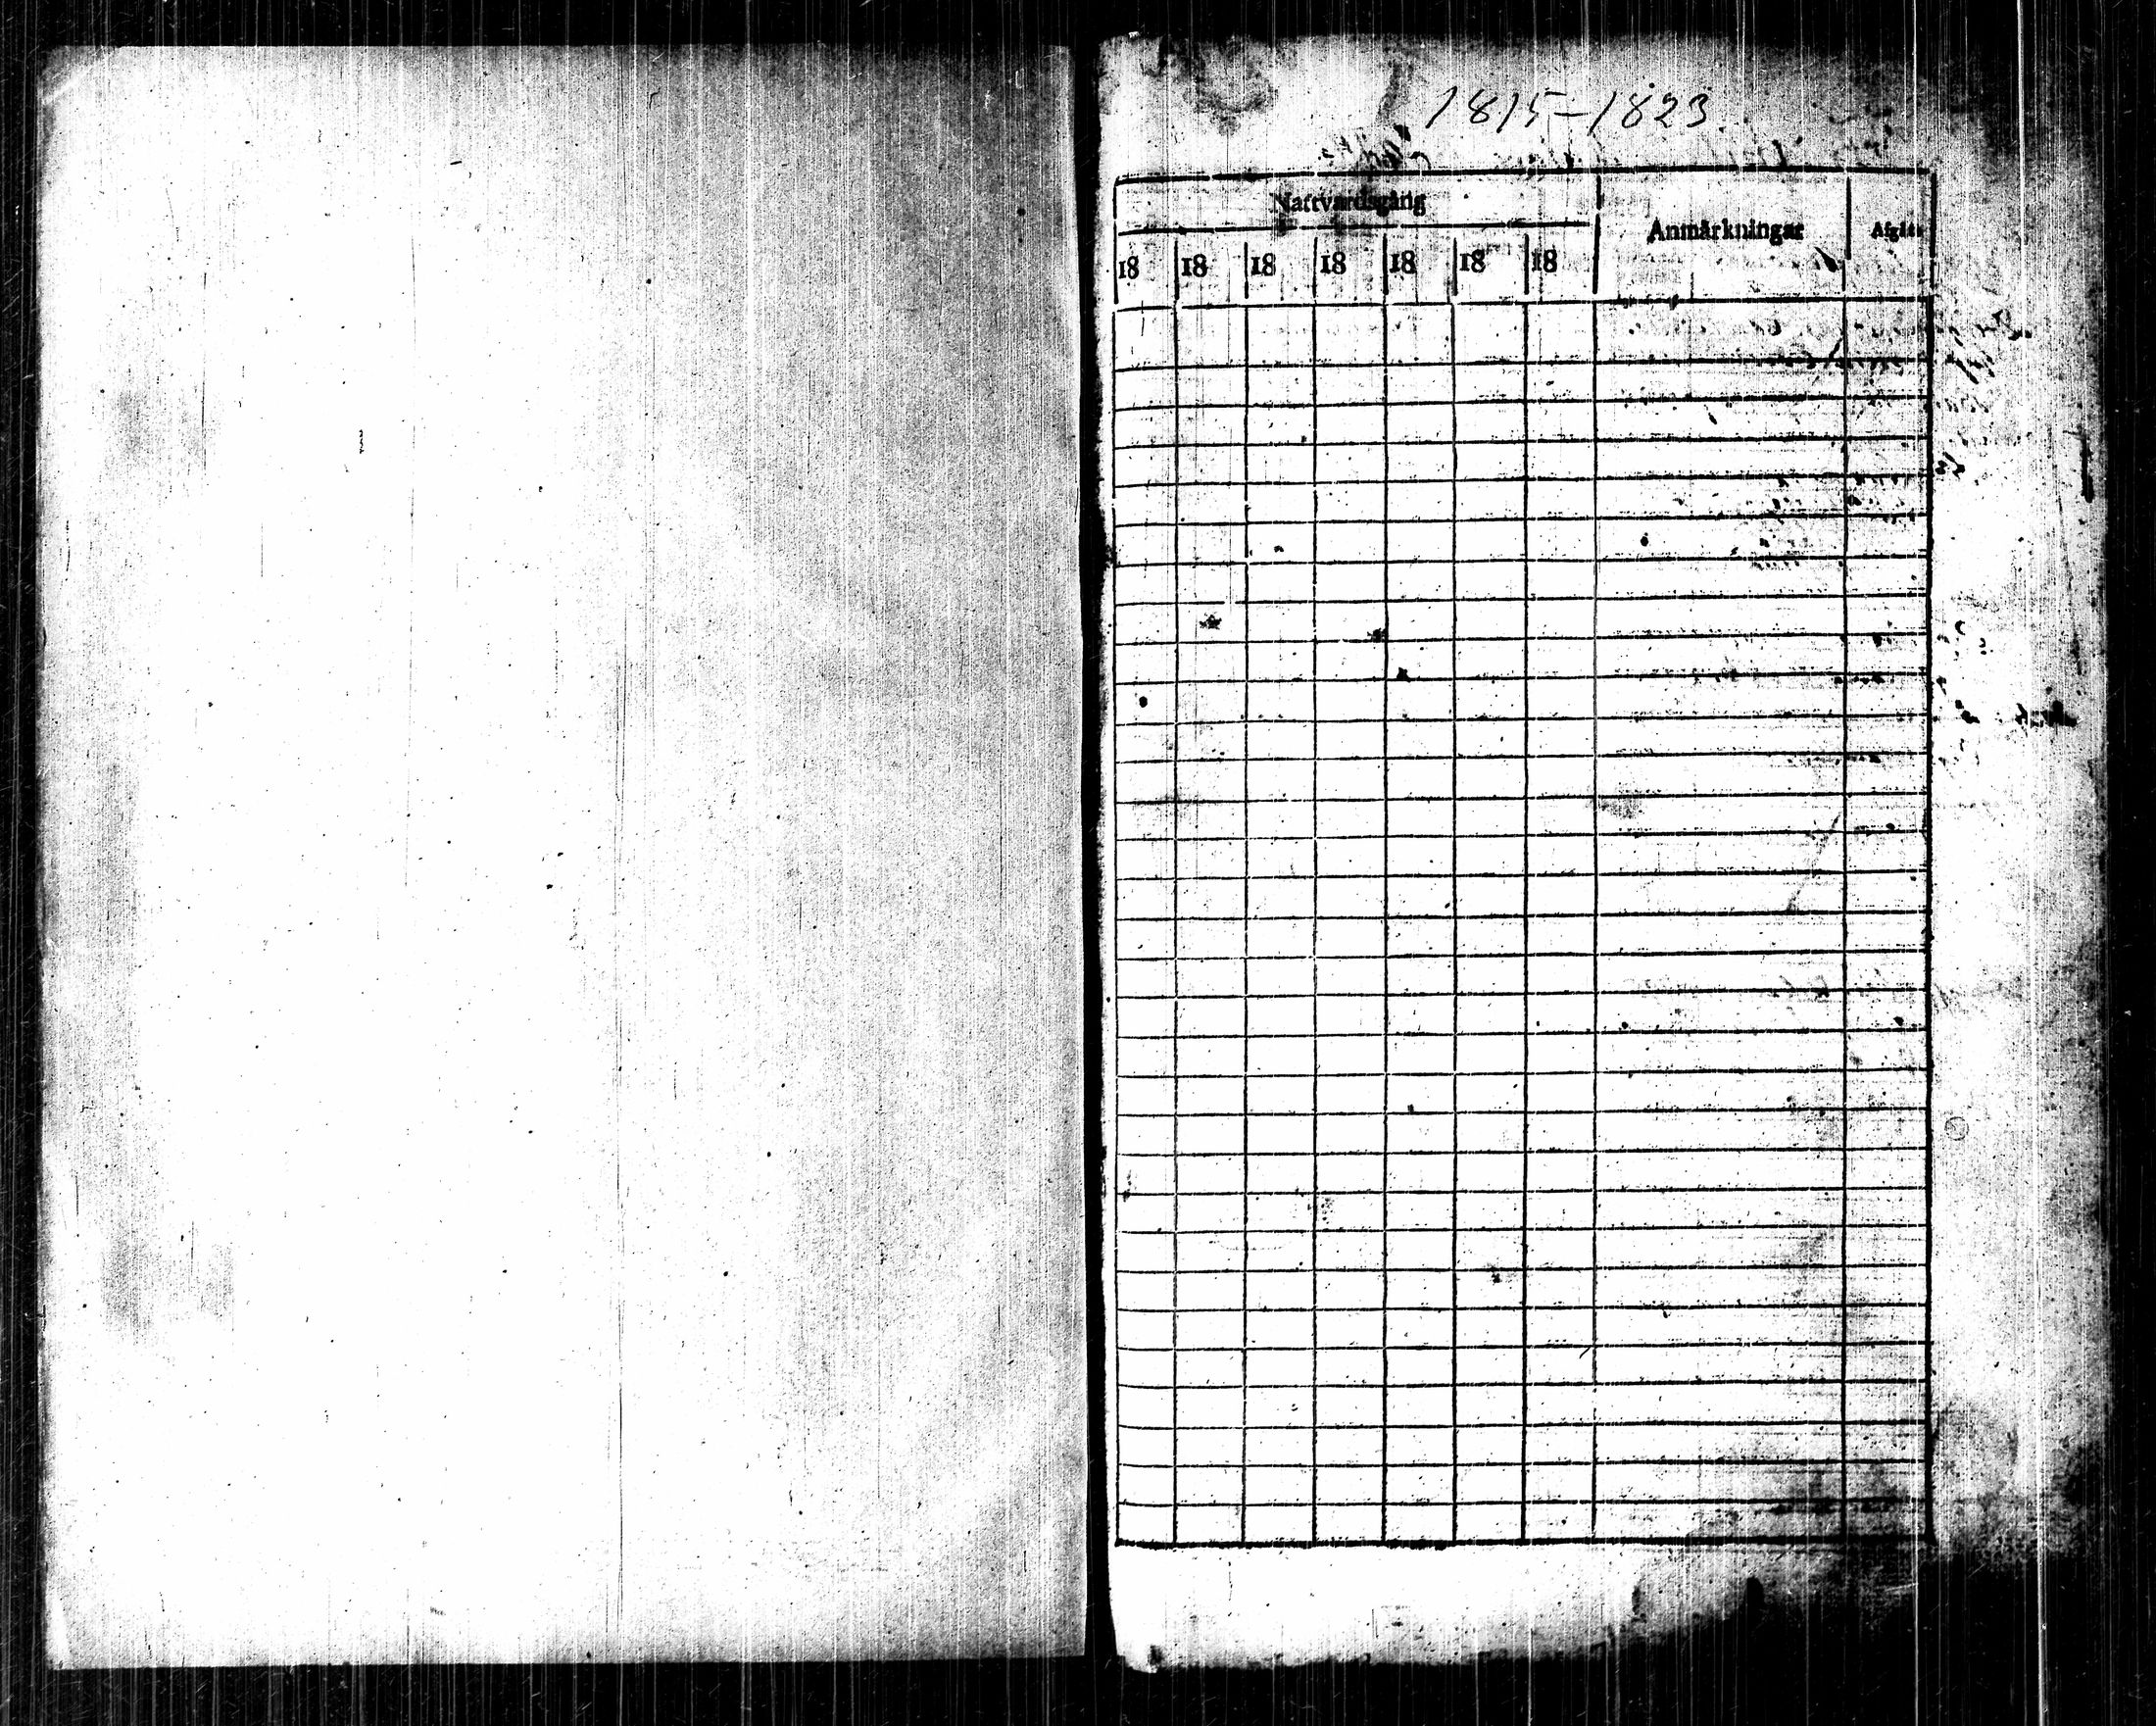 1815-1823
Nattvardsgång
Anmärkningar
18 18 18 18 18 18 18